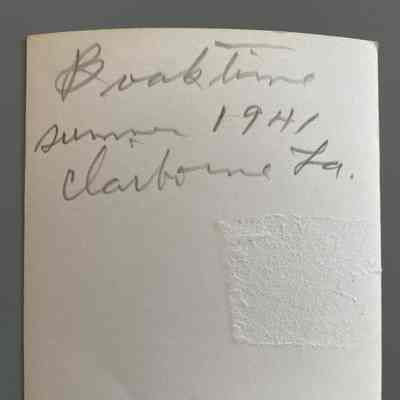 Book time
summer 1941
Claiborne La.